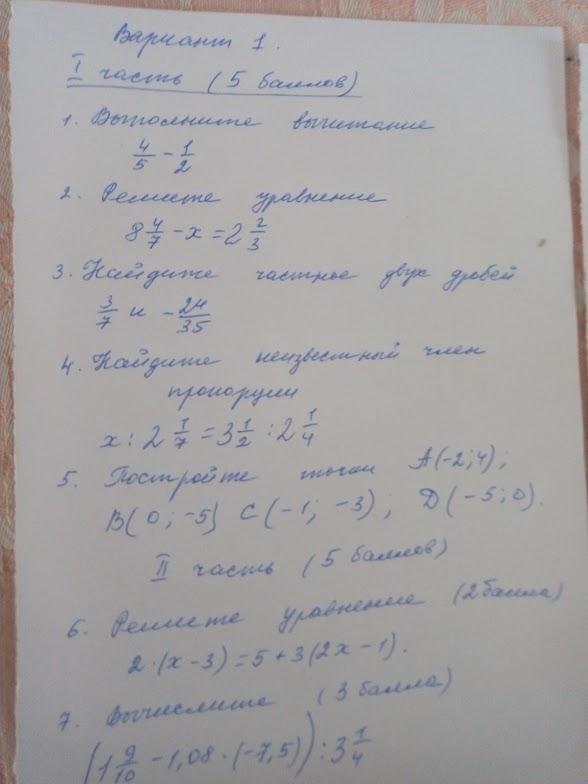 Вариант 1.
I часть (5 баллов)
1. Выполните вычитание
4/5 - 1/2
2. Решите уравнение
8 4/7 - x = 2 2/3
3. Найдите частное двух дробей
3/7 и - 24/35
4. Найдите неизвестный член
пропорции
x : 2 1/7 = 3 1/2 : 2 1/4
5. Постройте точки A(-2; 4);
B(0; -5) C(-1; -3); D(-5; 0).
II часть (5 баллов)
6. Решите уравнение (2 балла)
2·(x-3) = 5 + 3(2x-1).
7. Вычислите (3 балла)
(1 9/10 - 1,08·(-7,5)) : 3 1/4